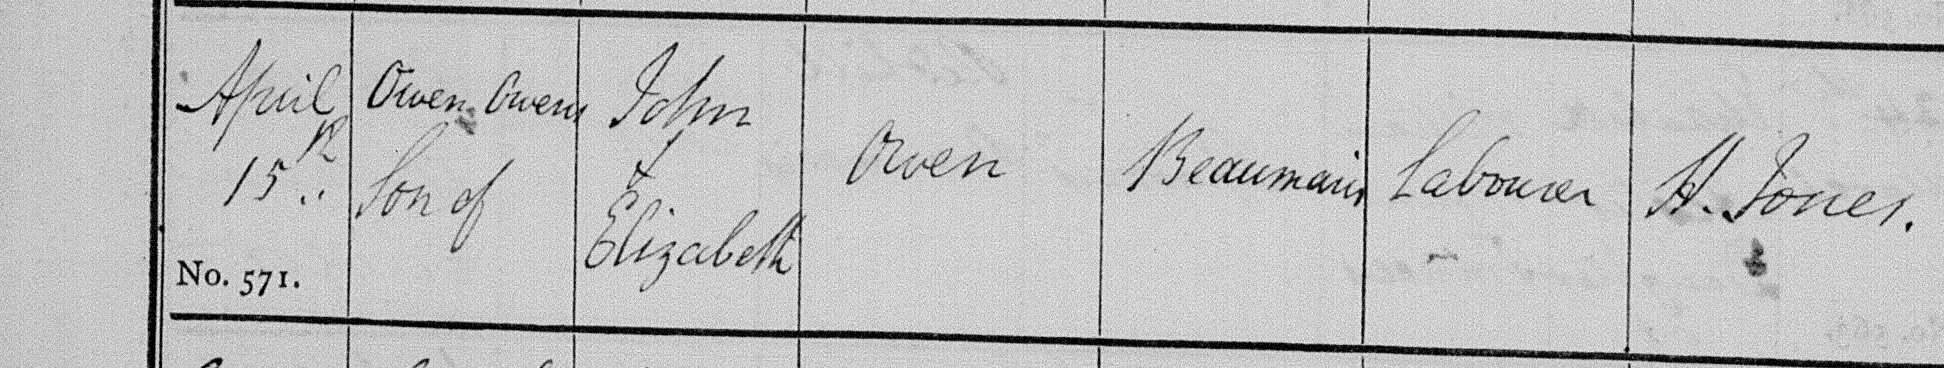 April
15th
No. 571.
Owen Owens
Son of
John
&
Elizabeth
Owen
Beaumaris
Labourer
H. Jones.